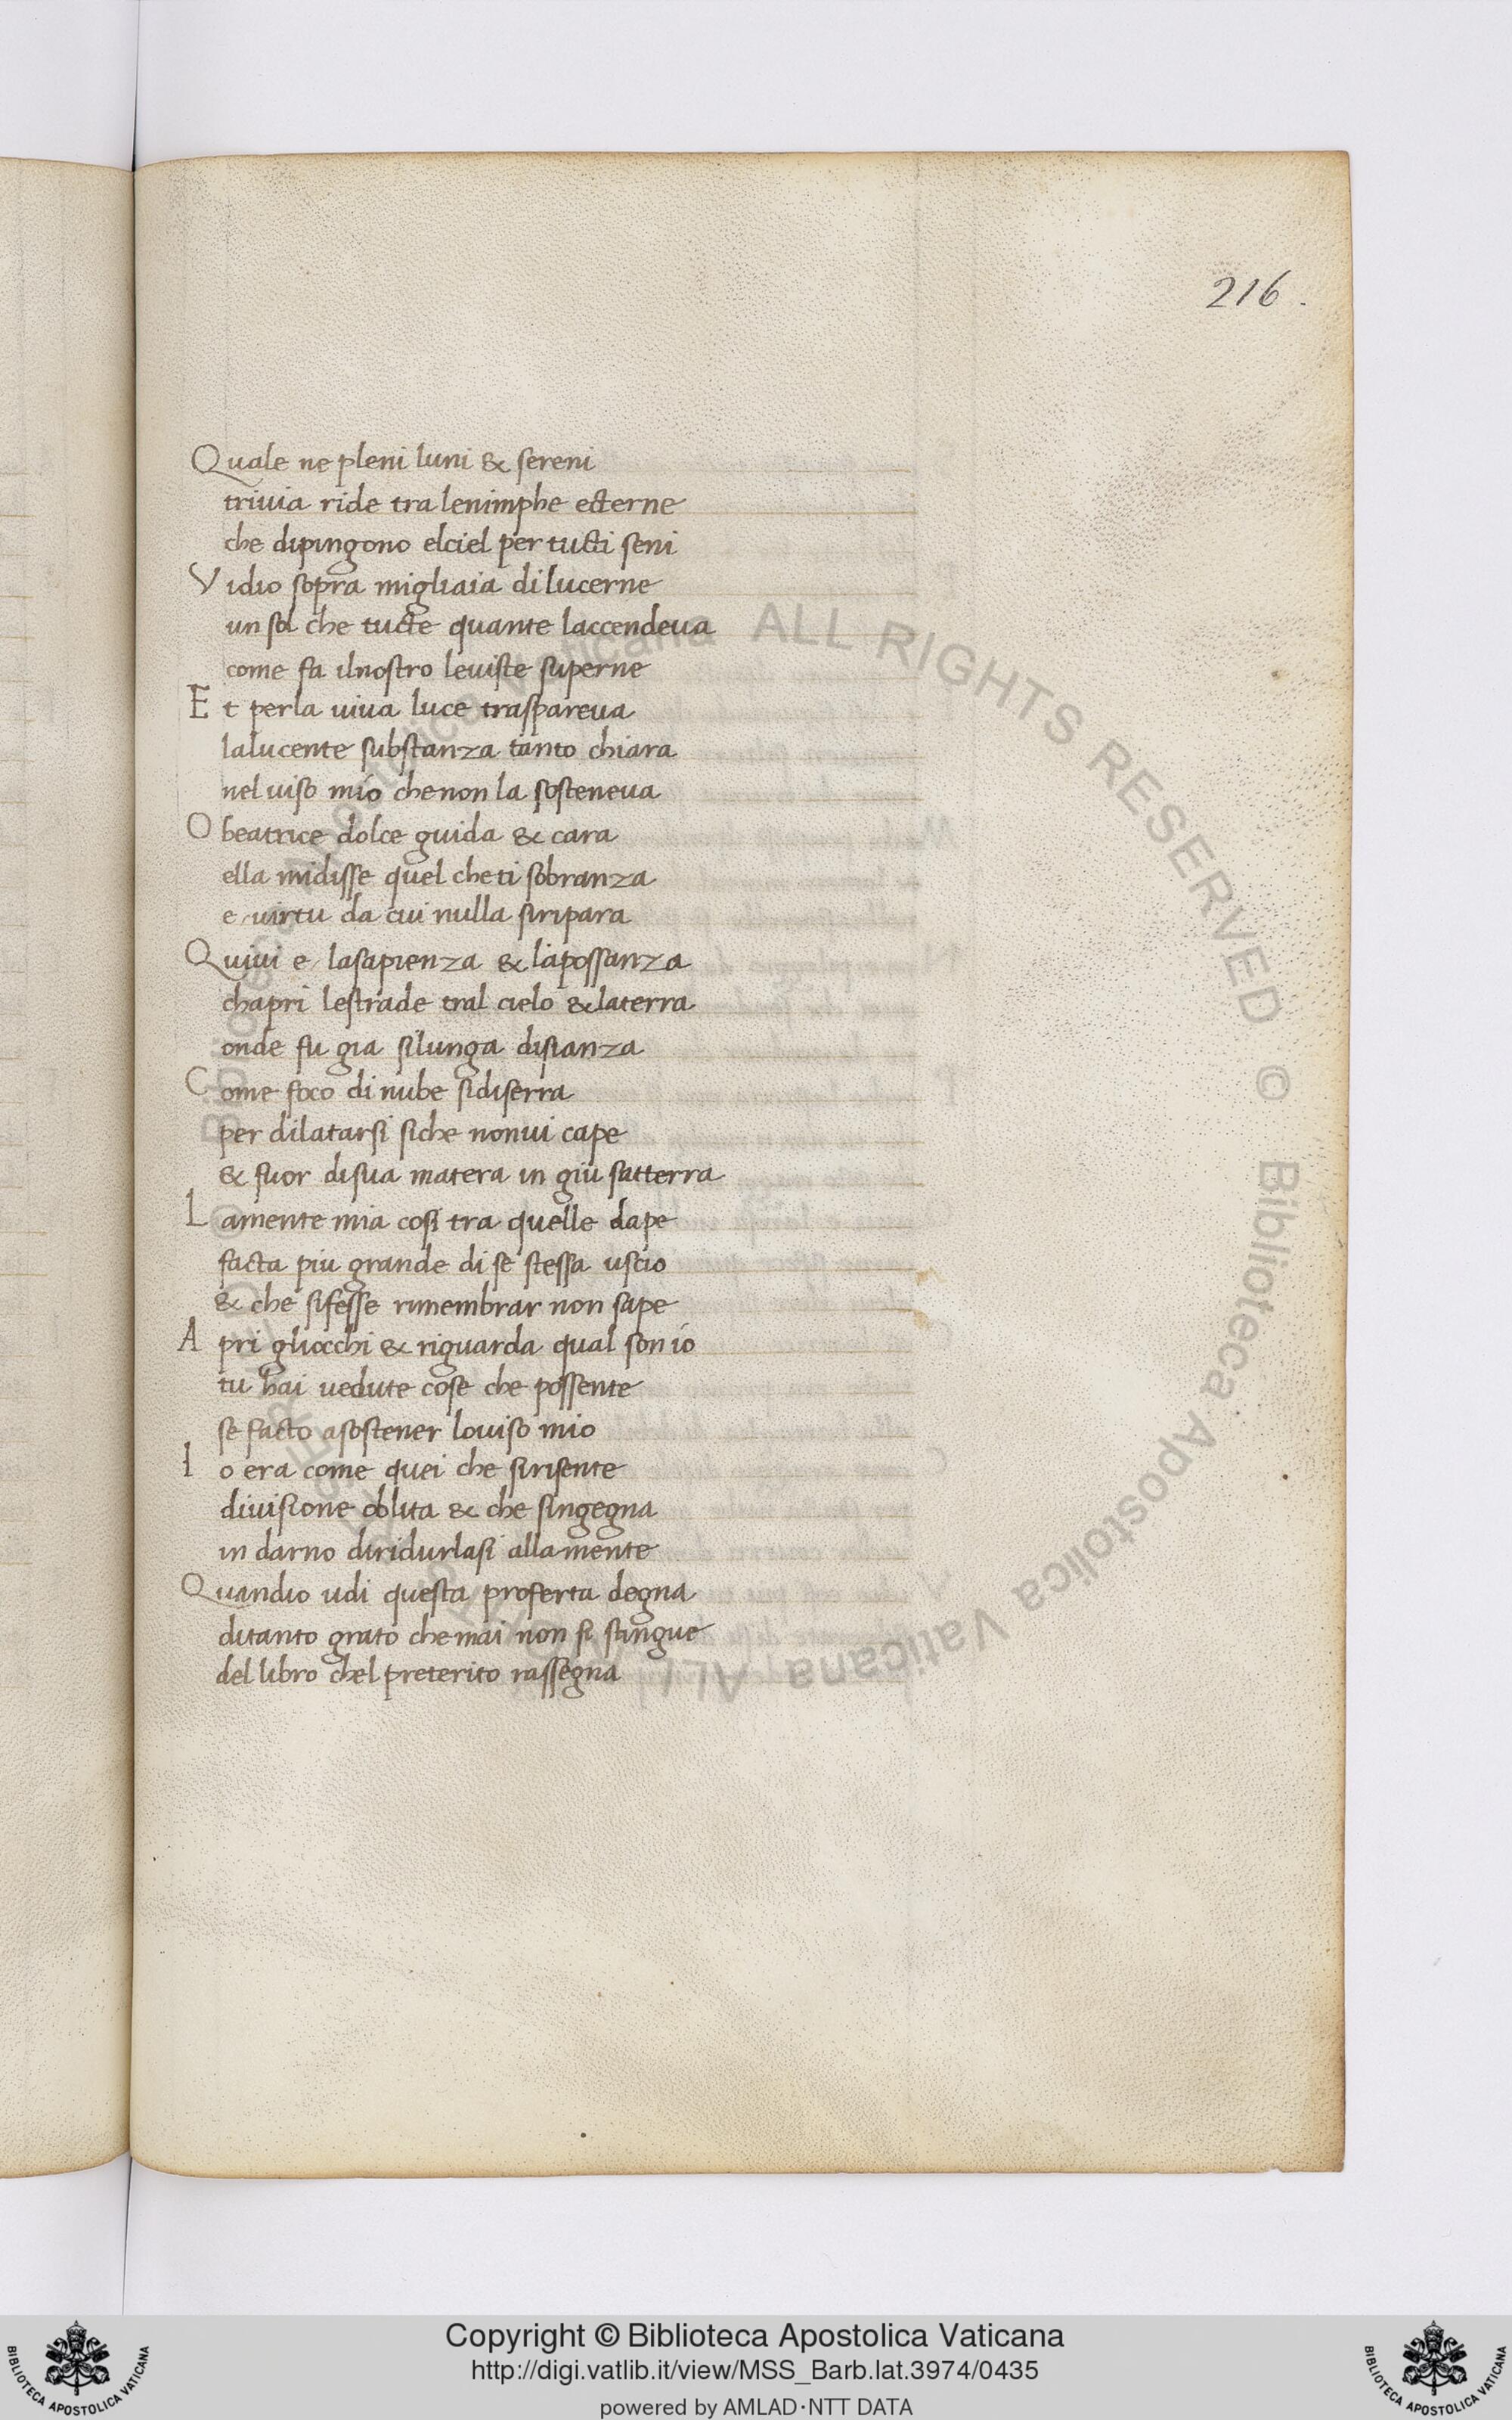 216.
Quale ne pleni luni & sereni
trivia ride tra lenimphe ecterne
che dipingono elciel per tucti seni
Vidio sopra migliaia di lucerne
un sol che tucte quante laccendeva
come fa ilnostro leviste superne
Et perla viva luce traspareva
lalucente substanza tanto chiara
nel viso mio chenon la sosteneva
O beatrice dolce guida & cara
ella midisse quel cheti sobranza
e virtu da cui nulla siripara
Quivi e lasapienza & lapossanza
chapri lestrade tral cielo & laterra
onde fu gia silunga disianza
Come foco di nube sidiserra
per dilatarsi siche nonvi cape
& fuor disua matera in giu satterra
Lamente mia cosi tra quelle dape
facta piu grande di se stessa uscio
& che sifesse rimembrar non sape
Apri gliocchi & riguarda qual son io
tu hai vedute cose che possente
se facto asostener loviso mio
Io era come quei che sirisente
divisione oblita & che singegna
in darno diridurlasi allamente
Quandio udi questa proferta degna
ditanto grato chemai non si stingue
del libro chel preterito rassegna
Copyright © Biblioteca Apostolica Vaticana
http://digi.vatlib.it/view/MSS_Barb.lat.3974/0435
powered by AMLAD·NTT DATA